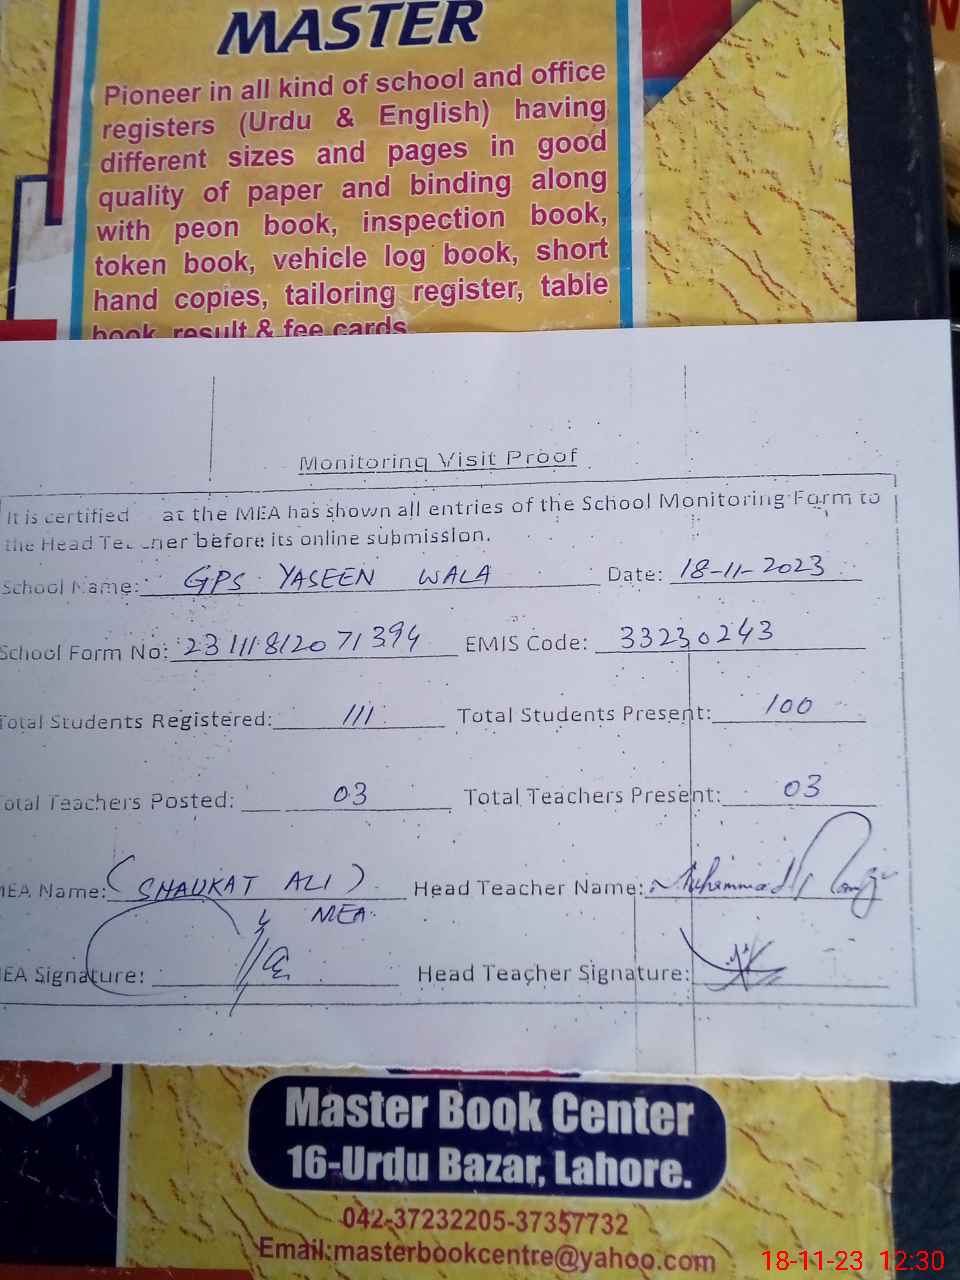 MASTER
Pioneer in all kind of school and office
registers (Urdu & English) having
different sizes and pages in good
quality of paper and binding along
with peon book, inspection book,
token book, vehicle log book, short
hand copies, tailoring register, table
book, result & fee cards
Monitoring Visit Proof
It is certified at the MEA has shown all entries of the School Monitoring Form to
the Head Teacher before its online submission.
School Name: GPS YASEEN WALA Date: 18-11-2023
School Form No: 23111812071394 EMIS Code: 33230243
Total Students Registered: 111 Total Students Present: 100
Total Teachers Posted: 03 Total Teachers Present: 03
MEA Name: (SHAUKAT ALI) Head Teacher Name: Muhammad
MEA
EA Signature: Head Teacher Signature:
Master Book Center
16-Urdu Bazar, Lahore.
042-37232205-37357732
Email:masterbookcentre@yahoo.com
18-11-23 12:30